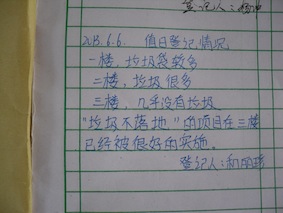 登记人：杨冲
2013.6.6. 值日登记情况
一楼，垃圾袋较多
二楼，垃圾很多
三楼，几乎没有垃圾
"垃圾不落地"的项目在三楼
已经被很好的实施。
登记人：和